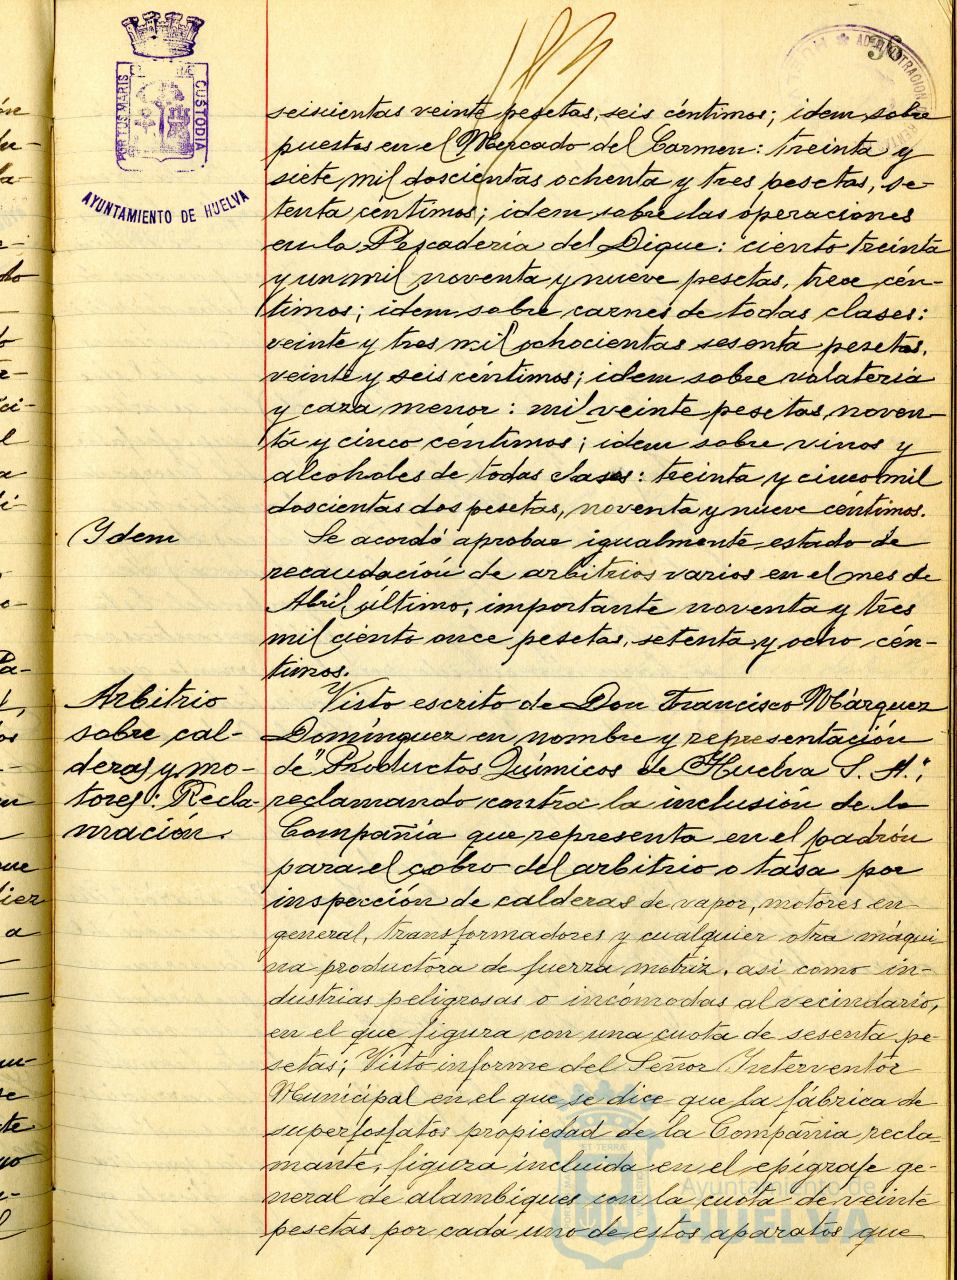 183
36
ADMINISTRACION
PORTUS MARIS
CUSTODIA
AYUNTAMIENTO DE HUELVA
seiscientas veinte pesetas, seis céntimos; idem sobre
puestos en el Mercado del Carmen: treinta y
siete mil doscientas ochenta y tres pesetas, se-
tenta céntimos; idem sobre las operaciones
en la Pescadería del Dique: ciento treinta
y un mil noventa y nueve pesetas, trece cén-
timos; idem sobre carnes de todas clases:
veinte y tres mil ochocientas sesenta pesetas,
veinte y seis céntimos; idem sobre volatería
y caza menor: mil veinte pesetas, noven-
ta y cinco céntimos; idem sobre vinos y
alcoholes de todas clases: treinta y cinco mil
doscientas dos pesetas, noventa y nueve céntimos.
Ydem
Se acordó aprobar igualmente estado de
recaudación de arbitrios varios en el mes de
Abril último, importante noventa y tres
mil ciento once pesetas, setenta y ocho cén-
timos.
Arbitrio
sobre cal-
deras y mo-
tores: Recla-
mación.
Visto escrito de Don Francisco Márquez
Domínguez en nombre y representación
de "Productos Químicos de Huelva S. A.",
reclamando contra la inclusión de la
Compañía que representa en el padrón
para el cobro del arbitrio o tasa por
inspección de calderas de vapor, motores en
general, transformadores y cualquier otra máqui
na productora de fuerza motriz, así como in-
dustrias peligrosas o incómodas al vecindario,
en el que figura con una cuota de sesenta pe-
setas; Visto informe del Señor Interventor
Municipal en el que se dice que la fábrica de
superfosfatos propiedad de la Compañia recla-
mante, figura incluida en el epígrafe ge-
neral de alambiques con la cuota de veinte
pesetas por cada uno de estos aparatos que
Ayuntamiento de
HUELVA